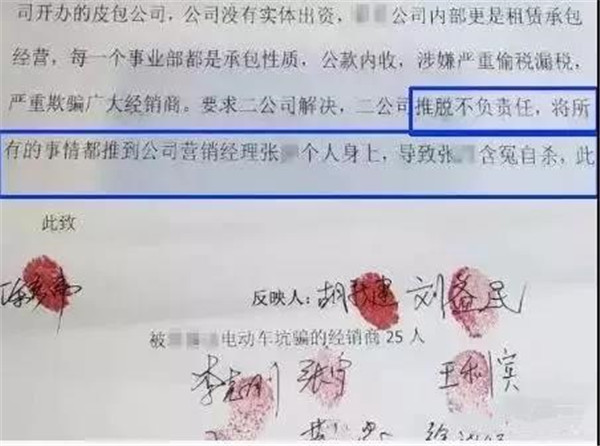 司开办的皮包公司，公司没有实体出资，公司内部更是租赁承包
经营，每一个事业部都是承包性质，公款内收，涉嫌严重偷税漏税，
严重欺骗广大经销商。要求二公司解决，二公司推脱不负责任，将所
有的事情都推到公司营销经理张个人身上，导致张含冤自杀，此
此致
反映人：刘益民
被电动车坑骗的经销商 25 人